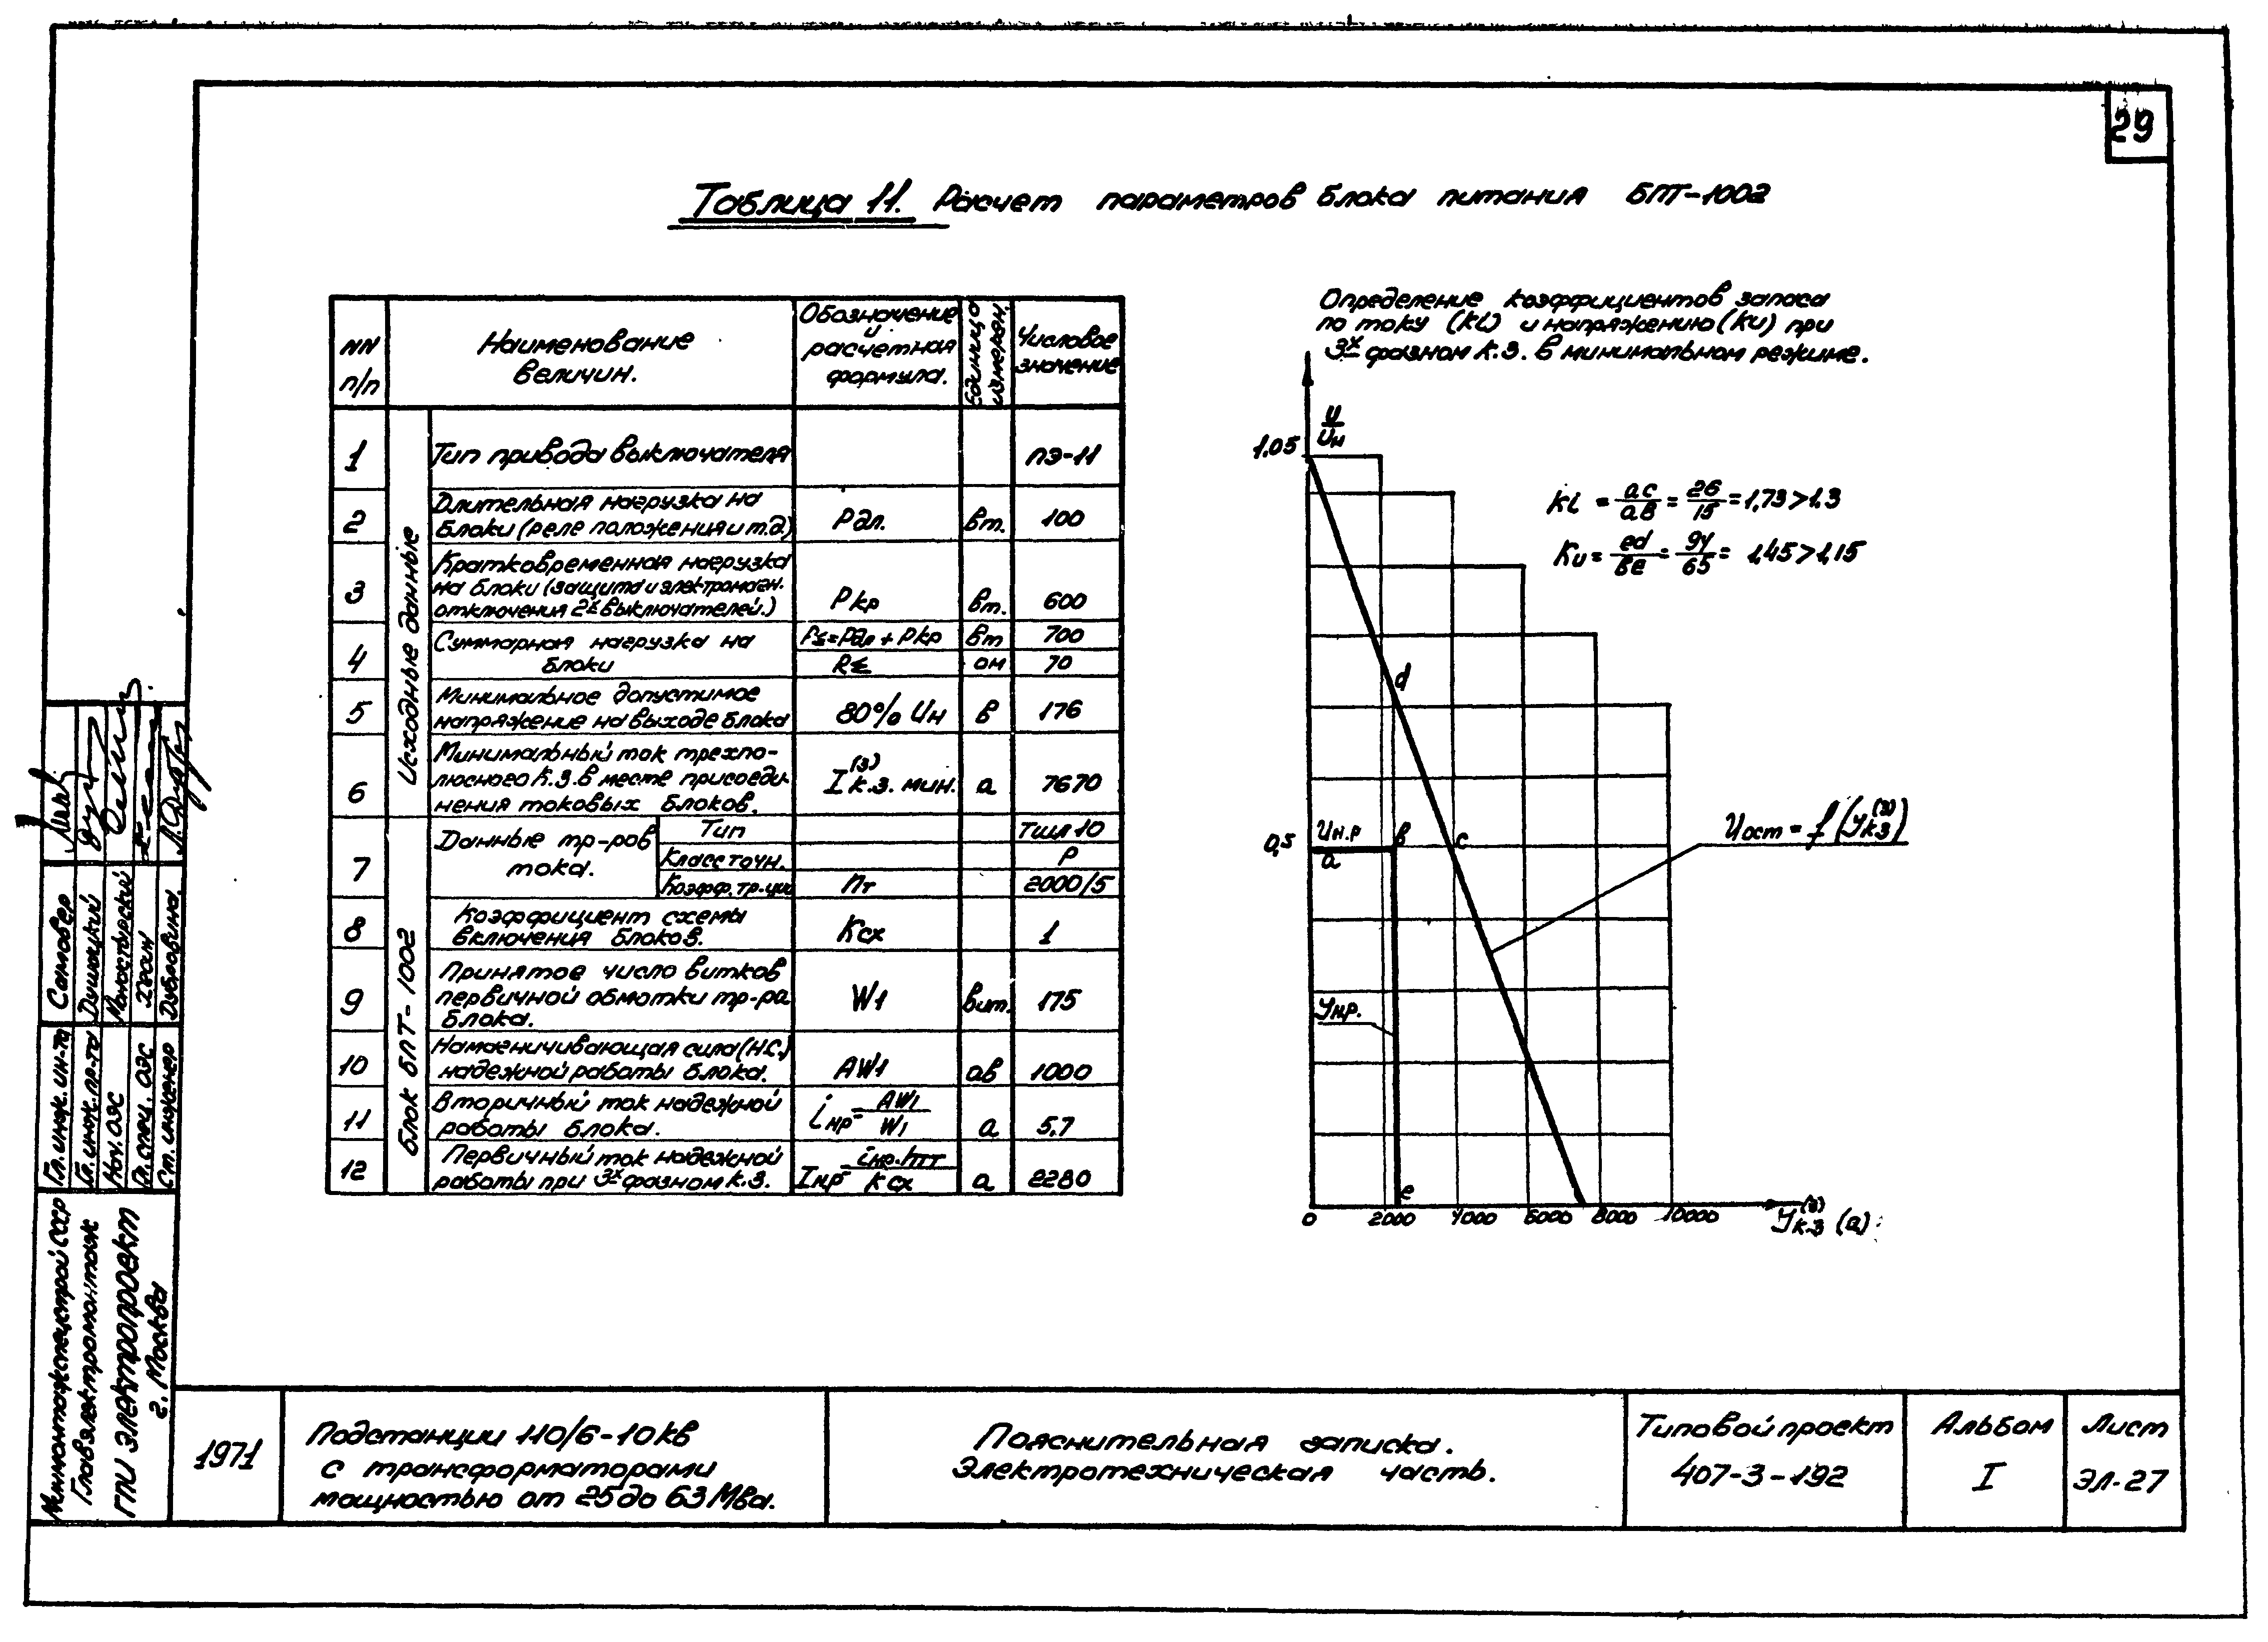 29
Таблица 11. Расчет параметров блока питания БПТ-1002
NN п/п
Наименование величин.
Обозначение и расчетная формула.
Единица измерен.
Числовое значение
Исходные данные
1 Тип привода выключателя ПЭ-11
2 Длительная нагрузка на блоки (реле положения и т.д.) Рдл. вт. 100
3 Кратковременная нагрузка на блоки (защита и электромагн. отключения 2х выключателей.) Ркр вт. 600
4 Суммарная нагрузка на блоки РΣ=Рдл + Ркр вт 700
RΣ ом 70
5 Минимальное допустимое напряжение на выходе блока 80% Uн в 176
6 Минимальный ток трехполюсного К.З. в месте присоединения токовых блоков. I(3) к.з. мин. а 7670
Блок БПТ-1002
7 Данные тр-ров тока. Тип ТШЛ 10
Класс точн. Р
Коэфф. тр-ции Пт 2000/5
8 Коэффициент схемы включения блоков. Ксх 1
9 Принятое число витков первичной обмотки тр-ра блока. W1 вит. 175
10 Намагничивающая сила (Н.С.) надежной работы блока. AW1 ав 1000
11 Вторичный ток надежной работы блока. iнр= AW1/W1 а 5,7
12 Первичный ток надежной работы при 3х фазном К.З. Iнр= iнр.hтт/Ксх а 2280
Определение коэффициентов запаса
по току (Ki) и напряжению (Ku) при
3х фазном К.З. в минимальном режиме.
U/Uн
1,05
Ki = ac/aв = 26/15 = 1,73>1,3
Ku = ed/вe = 94/65 = 1,45>1,15
d
0,5
Uн.р
а
в
с
Uост = f(Iк.з(3))
Iнр.
е
0 2000 4000 6000 8000 10000
Iк.з(3) (а)
Гл. инж. ин-та Самовер
Гл. инж. пр-та Душацкий
Нач. ОЭС
Гл. спец. ОЭС
Ст. инженер Дубровина.
Минмонтажспецстрой СССР
Главэлектромонтаж
ГПИ Электропроект
г. Москва
1971
Подстанции 110/6-10кв
с трансформаторами
мощностью от 25 до 63 Мва.
Пояснительная записка.
Электротехническая часть.
Типовой проект
407-3-192
Альбом
I
Лист
ЭЛ-27